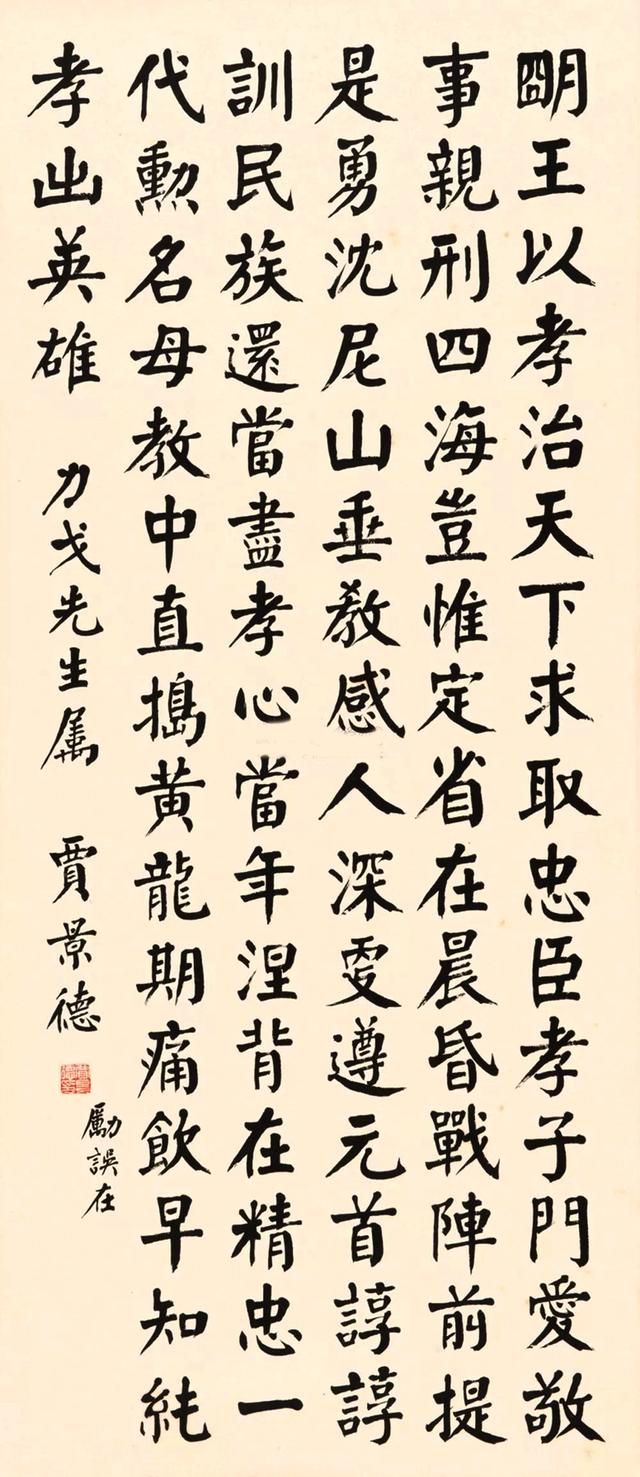 朙王以孝治天下求取忠臣孝子門愛敬
事親刑四海豈惟定省在晨昏戰陣前提
是勇沈尼山垂教感人深更遵元首諄諄
訓民族還當盡孝心當年涅背在精忠一
代勳名母教中直搗黄龍期痛飲早知純
孝出英雄 力戈先生属 賈景德
勵誤在